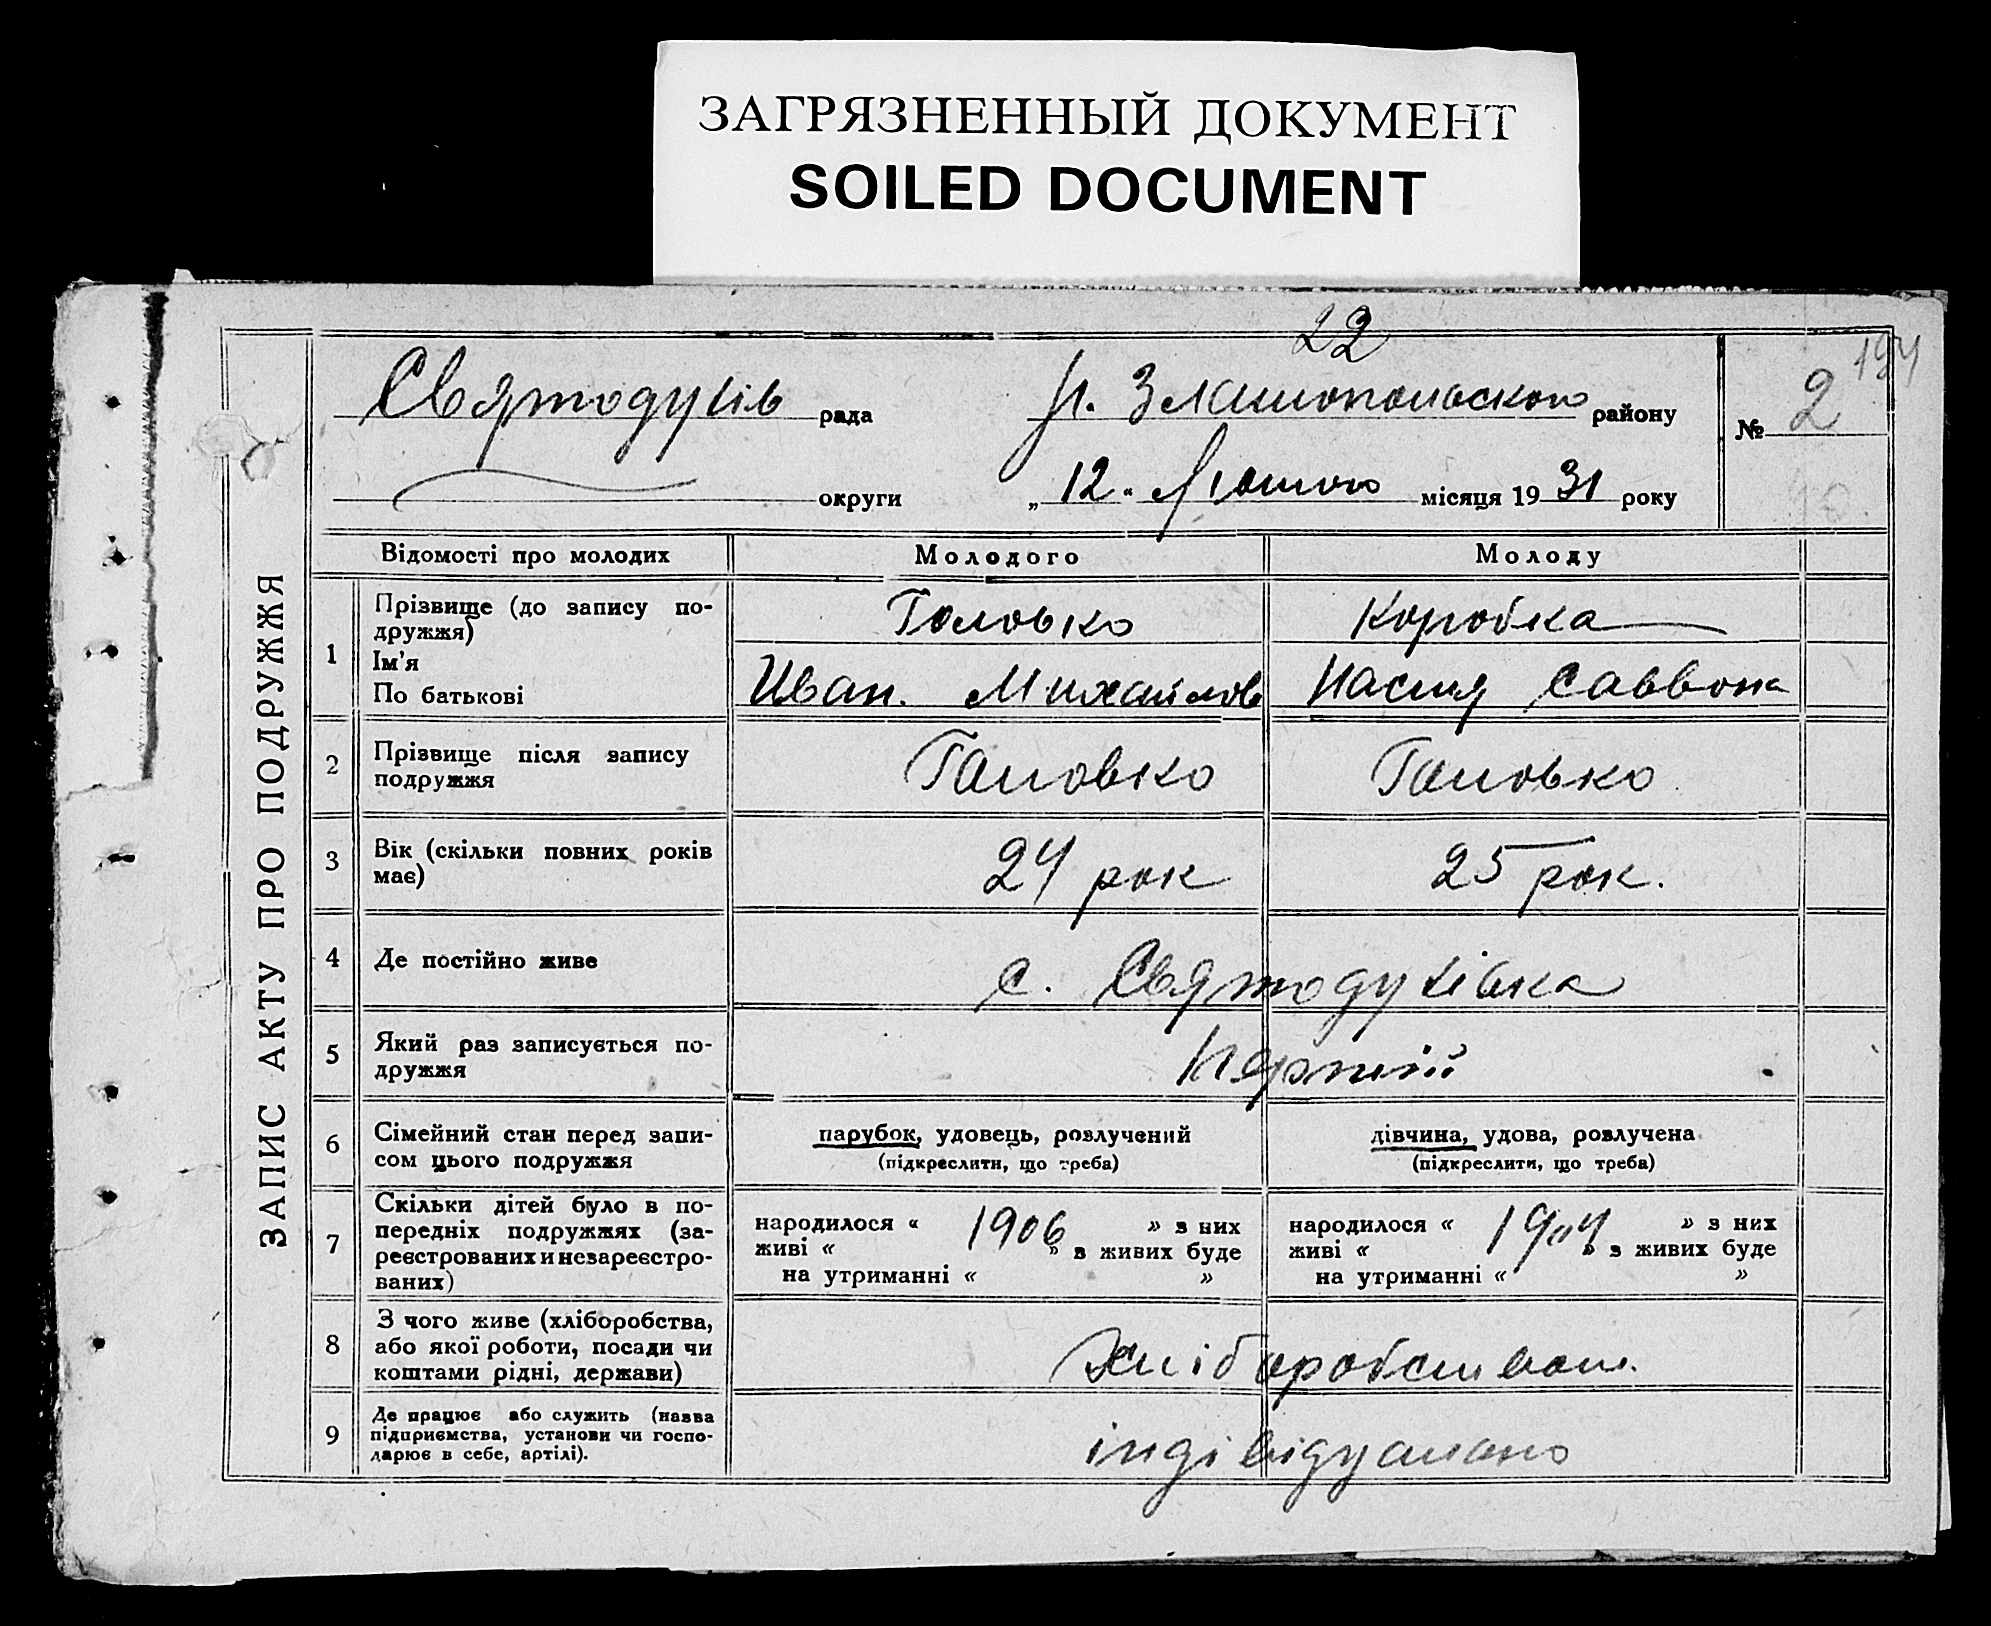 ЗАГРЯЗНЕННЫЙ ДОКУМЕНТ
SOILED DOCUMENT
22
194
рада
р. Златопольского району
№ 2
округи
„ 12 " Лютого місяця 19 31 року
ЗАПИС АКТУ ПРО ПОДРУЖЖЯ
Відомості про молодих
Молодого
Молоду
1
Прізвище (до запису по-
дружжя)
Ім'я
По батькові
Головко
Иван. Михайлов
Коробка
Настя Саввона
2
Прізвище після запису
подружжя
Головко
Головко
3
Вік (скільки повних років
має)
24 рок
25 рок.
4
Де постійно живе
с. Святодухівка
5
Який раз записується по-
дружжя
Перший
6
Сімейний стан перед запи-
сом цього подружжя
парубок, удовець, розлучений
(підкреслити, що треба)
дівчина, удова, розлучена
(підкреслити, що треба)
7
Скільки дітей було в по-
передніх подружжях (за-
реєстрованих и незареєстро-
ваних)
народилося « 1906 » з них
живі « » з живих буде
на утриманні « »
народилося « 1904 » з них
живі « » з живих буде
на утриманні « »
8
З чого живе (хліборобства,
або якої роботи, посади чи
коштами рідні, держави)
Хліборобством.
9
Де працює або служить (назва
підприємства, установи чи госпо-
дарює в себе, артілі).
індівідуально